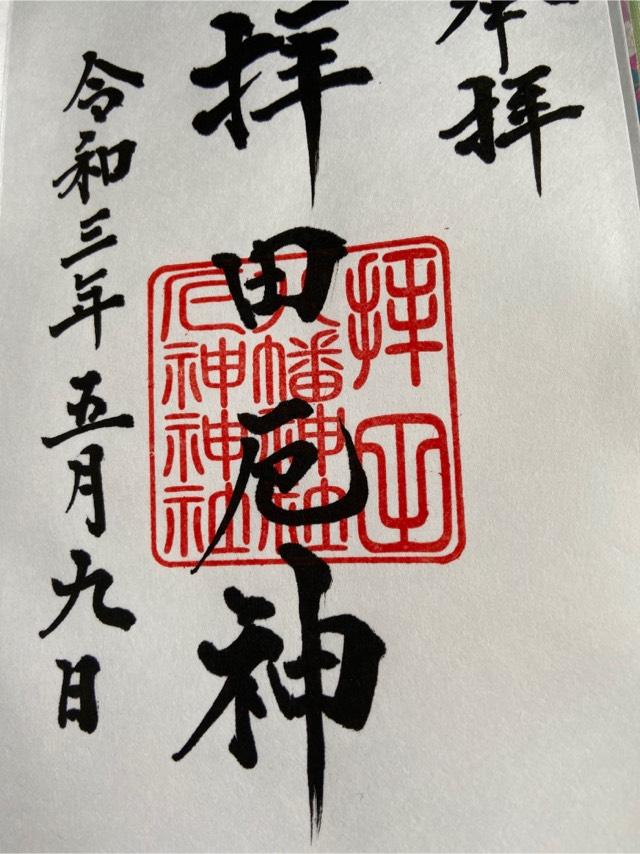 奉拝
拝田厄神
拝田
八幡神社
厄神神社
令和三年五月九日